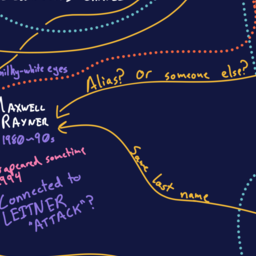 milky-white eyes
Alias? or someone else?
MAXWELL
RAYNER
1980-90s
Same last name
sometime
1994
Connected to
LEITNER
"ATTACK"?